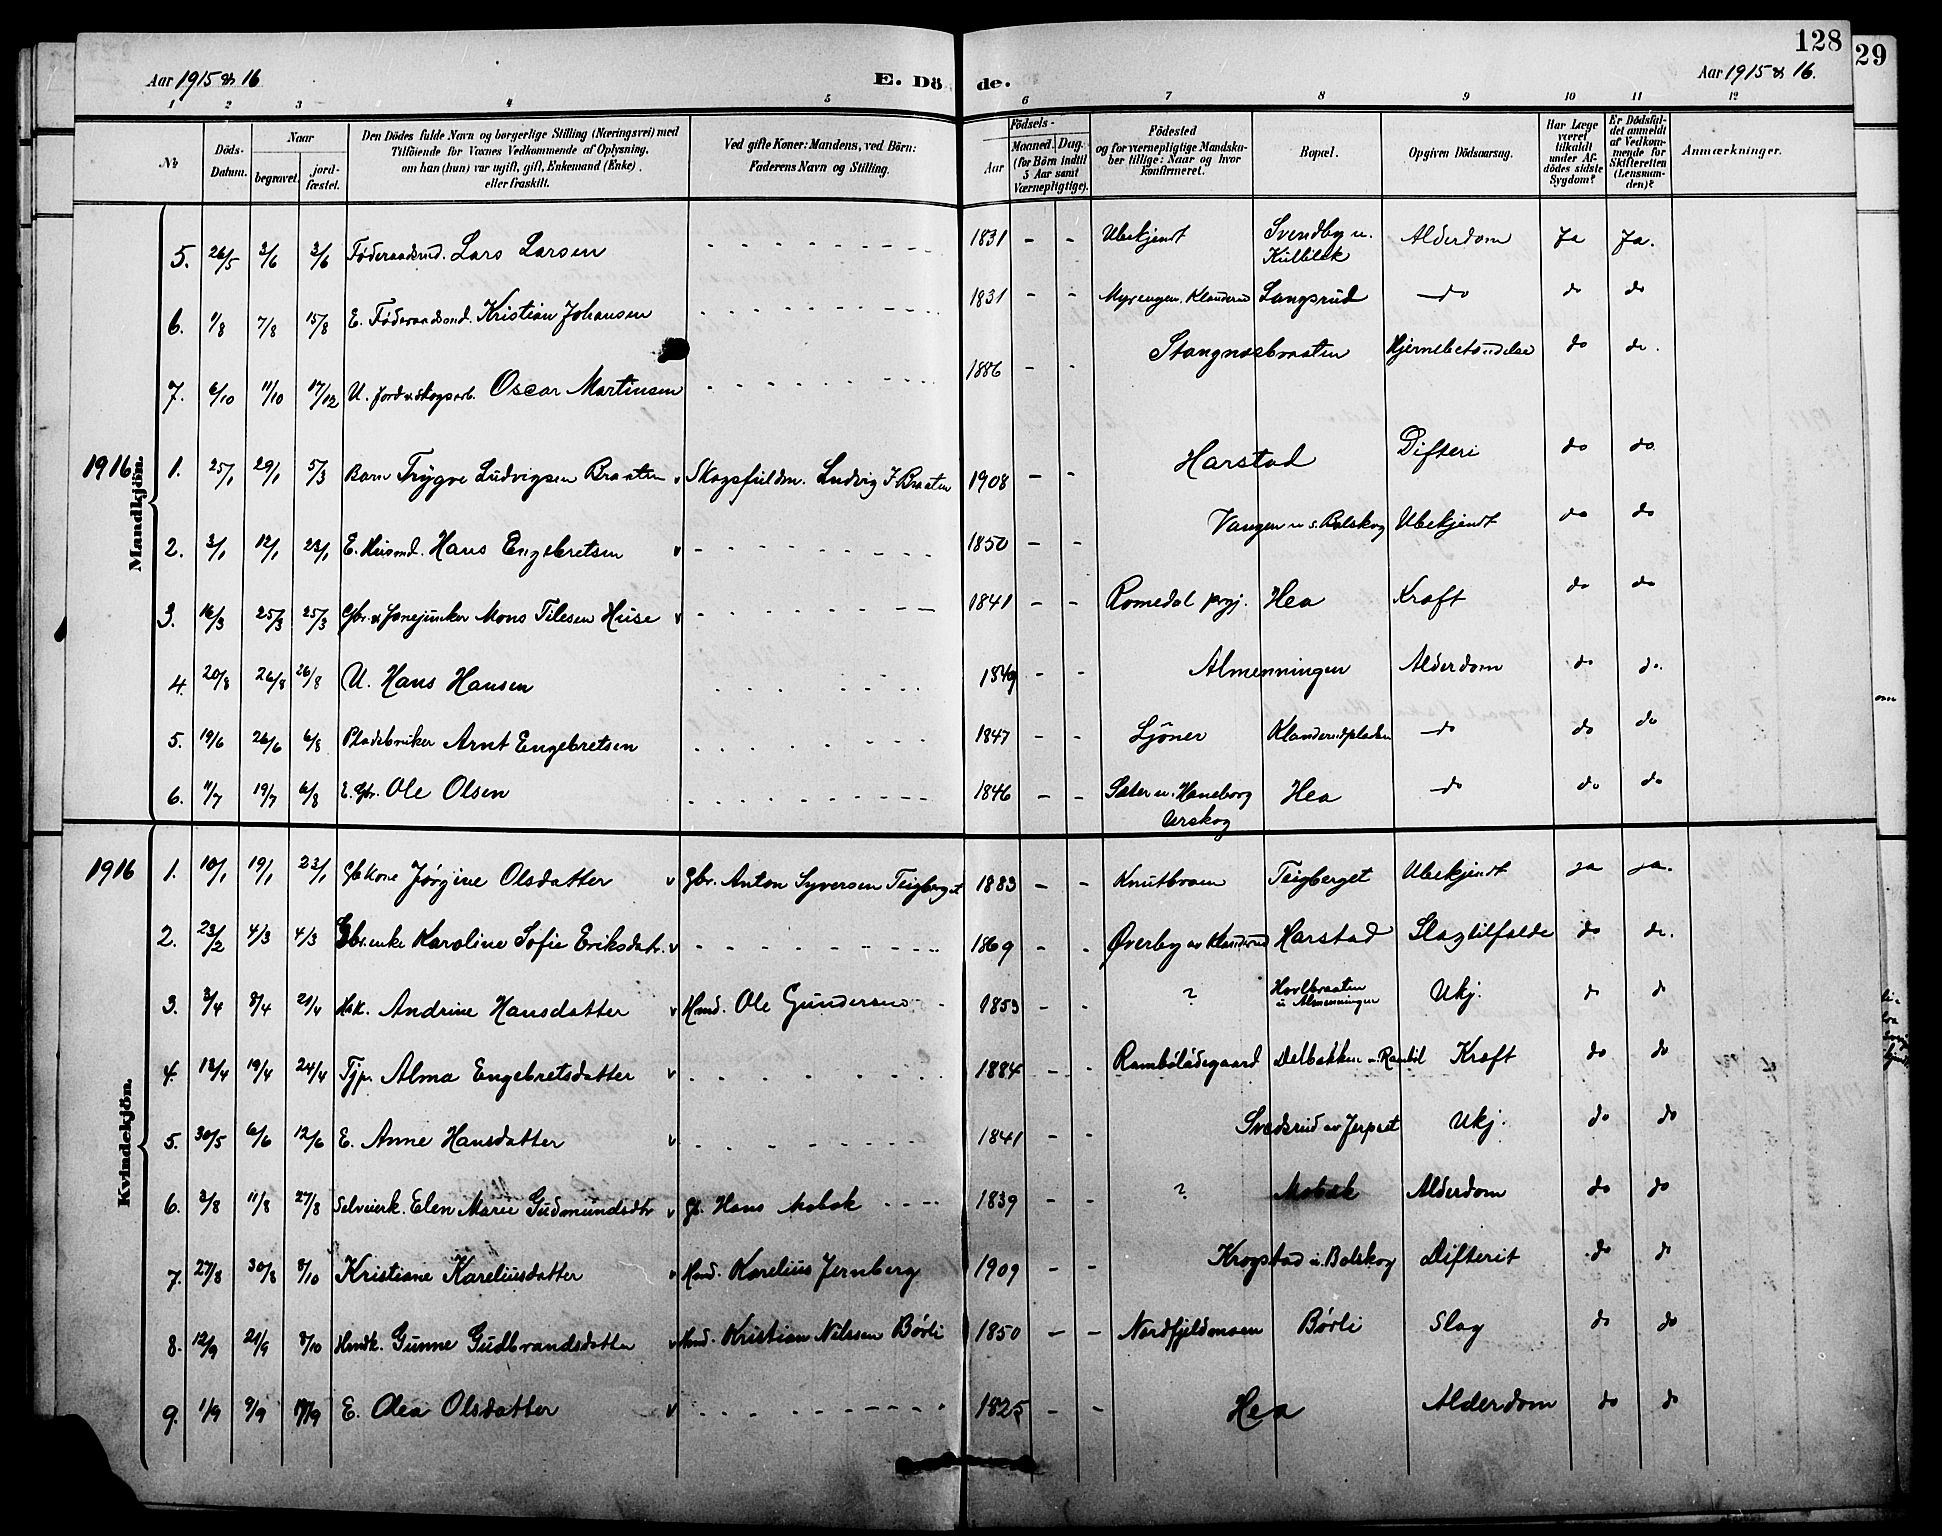 128
29
Aar 1915 & 16
E. Dö de.
Aar 1915 & 16.
1 2 3 4 5 6 7 8 9 10 11 12
No
Döds-Datum.
Naar
begravet.
jord-fæstet.
Den Dödes fulde Navn og borgerlige Stilling (Næringsvei) med
Tilföiende for Voxnes Vedkommende af Oplysning,
om han (hun) var ugift, gift, Enkemand (Enke)
eller fraskilt.
Ved gifte Koner: Mandens, ved Börn:
Faderens Navn og Stilling.
Födsels-
Aar
Maaned. Dag.
(for Börn indtil
5 Aar samt
Værnepligtige).
Födested
og for værnepligtige Mandska-
ber tillige: Naar og hvor
konfirmeret.
Bopæl.
Opgiven Dödsaarsag.
Har Læge
været
tilkaldt
under Af-
dödes sidste
Sygdom?
Er Dödsfal-
det anmeldt
af Vedkom-
mende for
Skifteretten
(Lensman-
den)?
Anmærkninger.
5. 26/5 3/6 3/6 Føderaadsmd. Lars Larsen - - - 1831 - - Ubekjendt Svendby u. Kulblik Alderdom Ja Ja.
6. 1/8 7/8 15/8 E. Føderaadsmd. Kristian Johansen - - - 1831 - - Myrengen, Klanderud Langsrud do do do
7. 6/10 11/10 17/12 U. Jord & skogsarb. Oscar Martinsen - - - 1886 - - Stangnesbraaten Hjernebetændelse do do.
1916
Mandkjön.
1. 25/1 29/1 5/3 Barn Trygve Ludvigsen Braaten v Skogsfuldm. Ludvig J. Braaten 1908 - - Harstad Difteri do do
2. 3/1 12/1 23/1 E. Husmd. Hans Engebretsen v - - - 1850 - - Vangen u s. Bolskog Ubekjendt do do
3. 16/3 25/3 25/3 Gbr. & Mons Tilesen Huse v - - - 1841 - - Romedal prgj. Hea Kræft do do
4. 20/8 26/8 26/8 U. Hans Hansen - - - 1849 - - Almenningen Alderdom do do.
5. 19/6 26/6 6/8 Pladsbruker Arnt Engebretsen - - - 1847 - - Ljøner Klanderudpladsen do do do
6. 11/7 19/7 6/8 E. Gbr. Ole Olsen - - - 1846 - - Sæter u. Haneborg Urskog Hea do do do
1916
Kvindekjön.
1. 10/1 19/1 23/1 Gbkone Jørgine Olsdatter v Gbr. Anton Syversen Teigberget 1883 - - Knutbroen Teigberget Ubekjendt ja ja.
2. 23/2 4/3 4/3 Gbr.enke Karoline Sofie Eriksdatr. v - - - 1869 - - Øverby av Klanderud Harstad Slagtilfælde do do.
3. 3/4 8/4 21/4 Hsk. Andrine Hansdatter v Hmd. Ole Gundersen 1853 - - ? Hovlbraaten u Almenningen Ukj. do do
4. 13/4 19/4 24/4 Tjp. Alma Engebretsdatter v - - - 1884 - - Rambølødegaard Delbakken u. Rambøl Kræft do do
5. 30/5 6/6 12/6 E. Anne Hansdatter v - - - 1841 - - Svedsrud av Jerpset Ukj. do do
6. 3/8 11/8 27/8 Selveierk. Elen Marie Gudmundsdtr v G. Hans Mobæk - - 1839 - - ? Mobæk Alderdom do do
7. 27/8 30/8 8/10 Kristiane Kareliusdatter v Hmd. Karelius Jernberg 1909 - - Krogstad u. Bolskog Difterit do do
8. 12/9 21/9 8/10 Hmdk. Gunne Gudbrandsdatter v Hmd. Kristian Nilssen Børli 1850 - - Nordfjeldmoen Børli Slag do do
9. 1/9 9/9 17/9 E. Olea Olsdatter v - - - 1825 - - Hea Alderdom do do